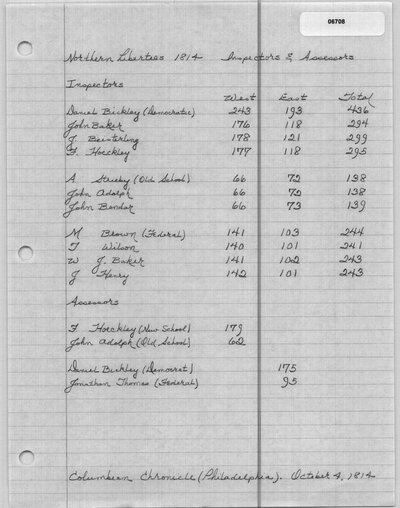 06708
Northern Liberties 1814 Inspectors & Assessors
Inspectors
West East Total
Daniel Bickley (Democratic) 243 193 436
John Baker 176 118 294
J. Beisterling 178 121 299
F. Hoeckley 177 118 295
A Strieby (Old School) 66 72 138
John Adolph 66 72 138
John Bender 66 73 139
M Brown (Federal) 141 103 244
T Wilson 140 101 241
W J. Baker 141 102 243
J Henry 142 101 243
Assessors
F Hoeckley (New School) 179
John Adolph (Old School) 62
Daniel Bickley (Democrat) 175
Jonathan Thomas (Federal) 95
Columbian Chronicle (Philadelphia). October 4, 1814